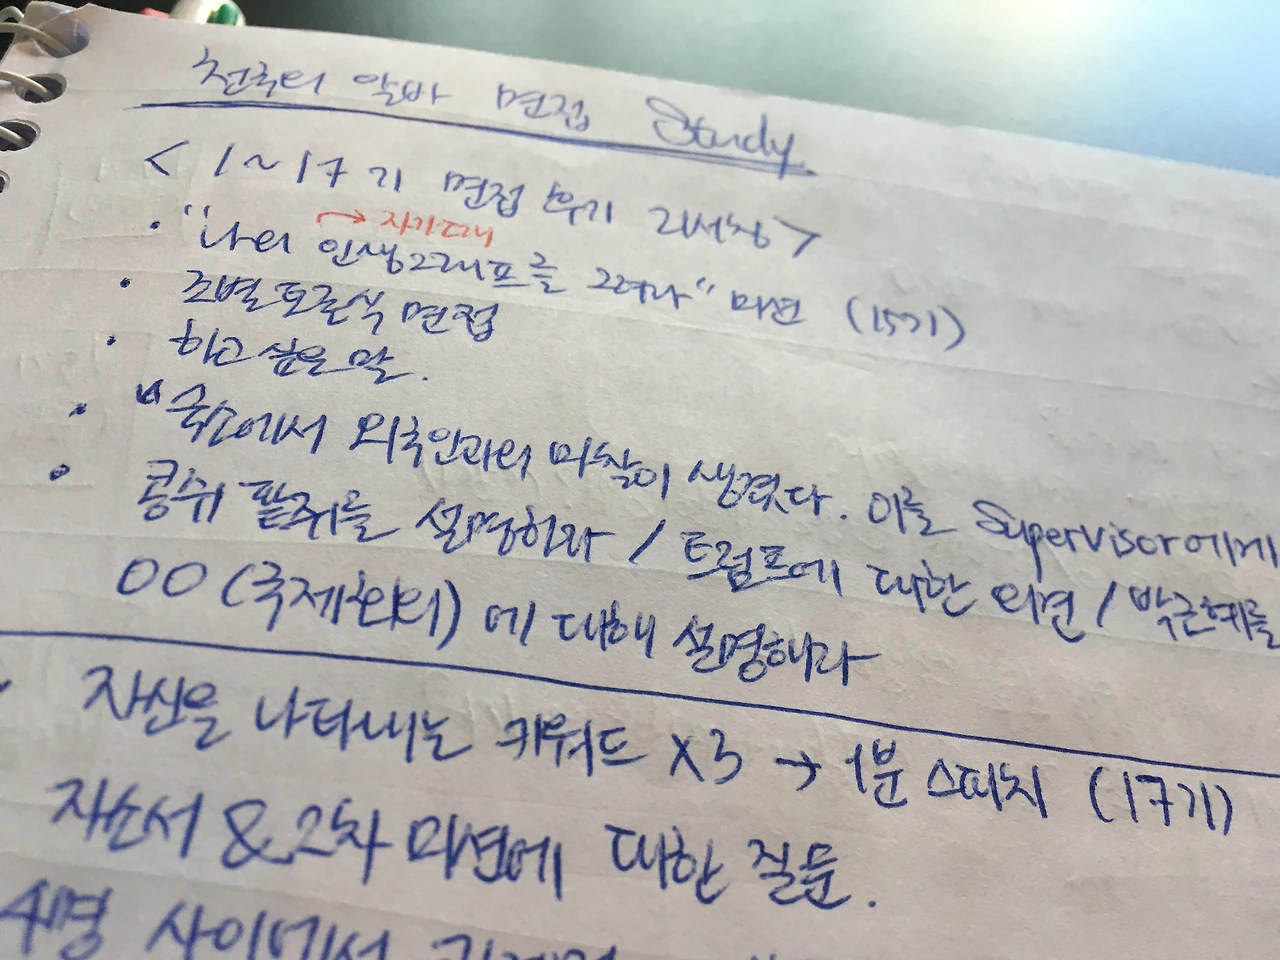 천국의 알바 면접 Study
< 1~17기 면접 후기 리서칭 >
→ 자기소개
· "나의 인생그래프를 그려라" 미션 (15기)
· 조별토론식 면접
· 하고 싶은 말.
· "국소에서 외국인과의 마찰이 생겼다. 이를 Supervisor에게
· 콩쥐 팥쥐를 설명하라 / 트럼프에 대한 의견 / 박근혜를
OO (국제회의) 에 대해 설명해라
자신을 나타내는 키워드 X3 → 1분 스피치 (17기)
자소서 & 2차 미션에 대한 질문.
4명 사이에서